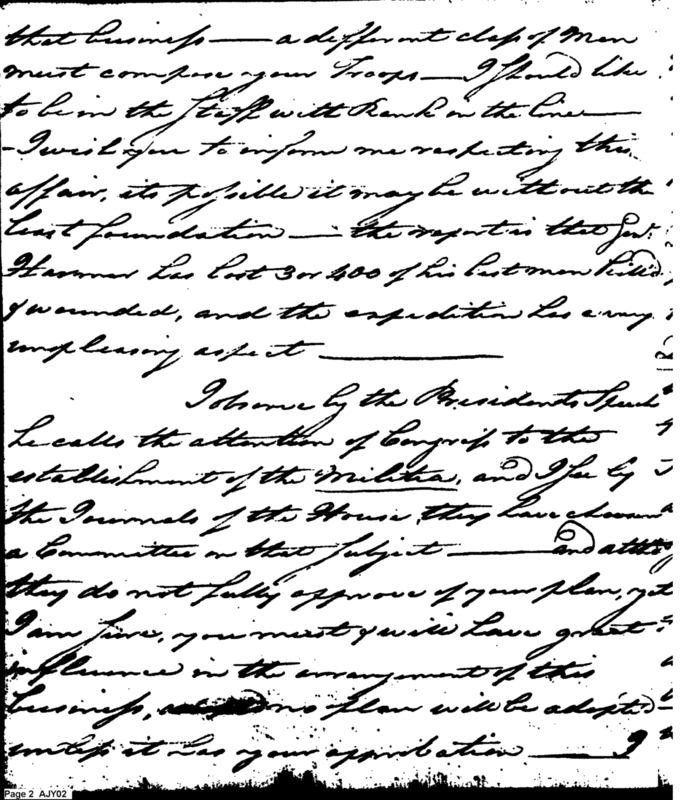 that business — a different class of Men
must compose your Troops — I should like
to be in the Staff with Rank in the line —
- I wish you to inform me respecting this
affair, its possible it may be without the
least foundation — the report is that Genl.
Harmar has lost 3 or 400 of his best men kill'd
& wounded, and the expedition has a very
unpleasing aspect —
I observe by the Presidents Speech
he calls the attention of Congress to the
establishment of the Militia, and I see by
the Journals of the House, they have chosen
a Committee on that subject — and altho
they do not fully approve of your plan, yet
I am sure, you must & will have great
influence in the arrangement of this
business, no plan will be adopted
unless it has your approbation — I
Page 2 AJY02